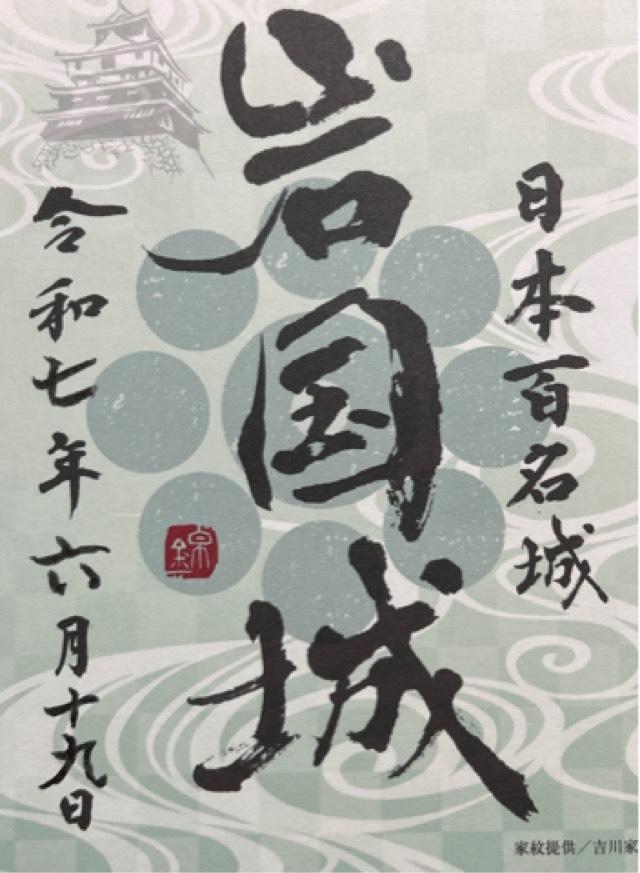 日本百名城
岩国城
令和七年六月十九日
家紋提供／吉川家